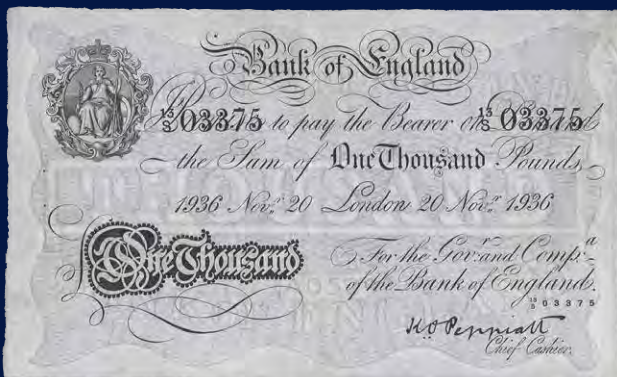 Bank of England
13/S 03375 to pay the Bearer on 13/S 03375
the Sum of One Thousand Pounds
1936 Novr. 20 London 20 Novr. 1936
One Thousand
For the Govr. and Compa.
of the Bank of England.
13/S 03375
K O Peppiatt
Chief Cashier.